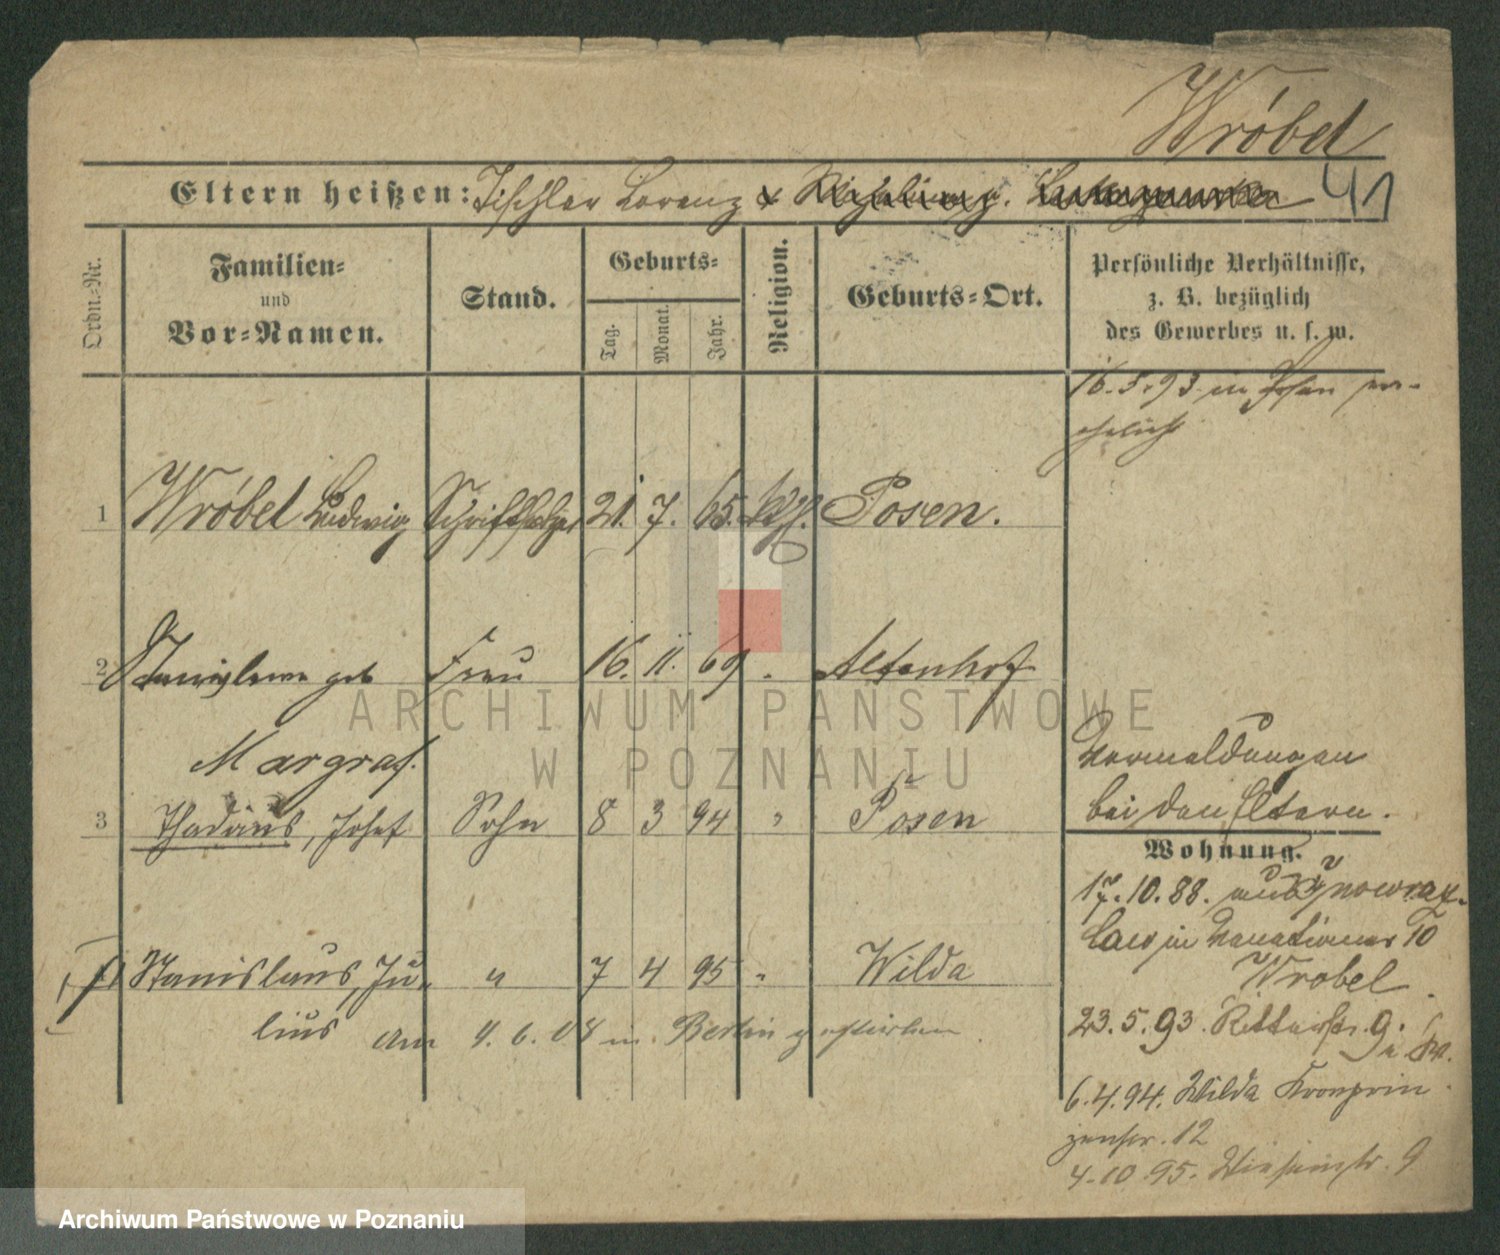 Wróbel
Eltern heißen: Tischler Lorenz
41
Ordn.-Nr.
Familien-
und
Vor-Namen.
Stand.
Geburts-
Tag.
Monat.
Jahr.
Religion.
Geburts-Ort.
Persönliche Verhältnisse,
z. B. bezüglich
des Gewerbes u. s. w.
16.5.93 in Posen ver-
ehelicht
1 Wróbel Ludwig Schriftsetzer 21. 7. 65. kath. Posen.
2 Stanislawa geb Frau 16. 11. 69 " Altenhof
Margraf.
3 Thadäus, Josef Sohn 8 3 94 " Posen
Vormeldungen
bei den Eltern.
Wohnung.
17.10.88. aus Inowraz-
law in 10
Wrobel
23.5.93. Ritterstr. 9.
Stanislaus, Ju- " 7 4 95 " Wilda
lius am 4.6.08 in Berlin gestorben
6.4.94. Wilda Kronprin-
zenstr. 12
4.10.95. 9
ARCHIWUM PAŃSTWOWE
W POZNANIU
Archiwum Państwowe w Poznaniu